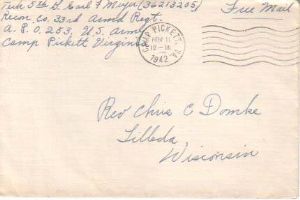 Tech 5th G. Earl F Meyer (36213205)
Recon. Co. 33rd Armd Regt.
A. P. O. 253, U. S. Army
Camp Pickett Virginia
Free Mail
CAMP PICKETT, VA.
NOV 11
1942
Rev Chris C Domke
Tilleda
Wisconsin